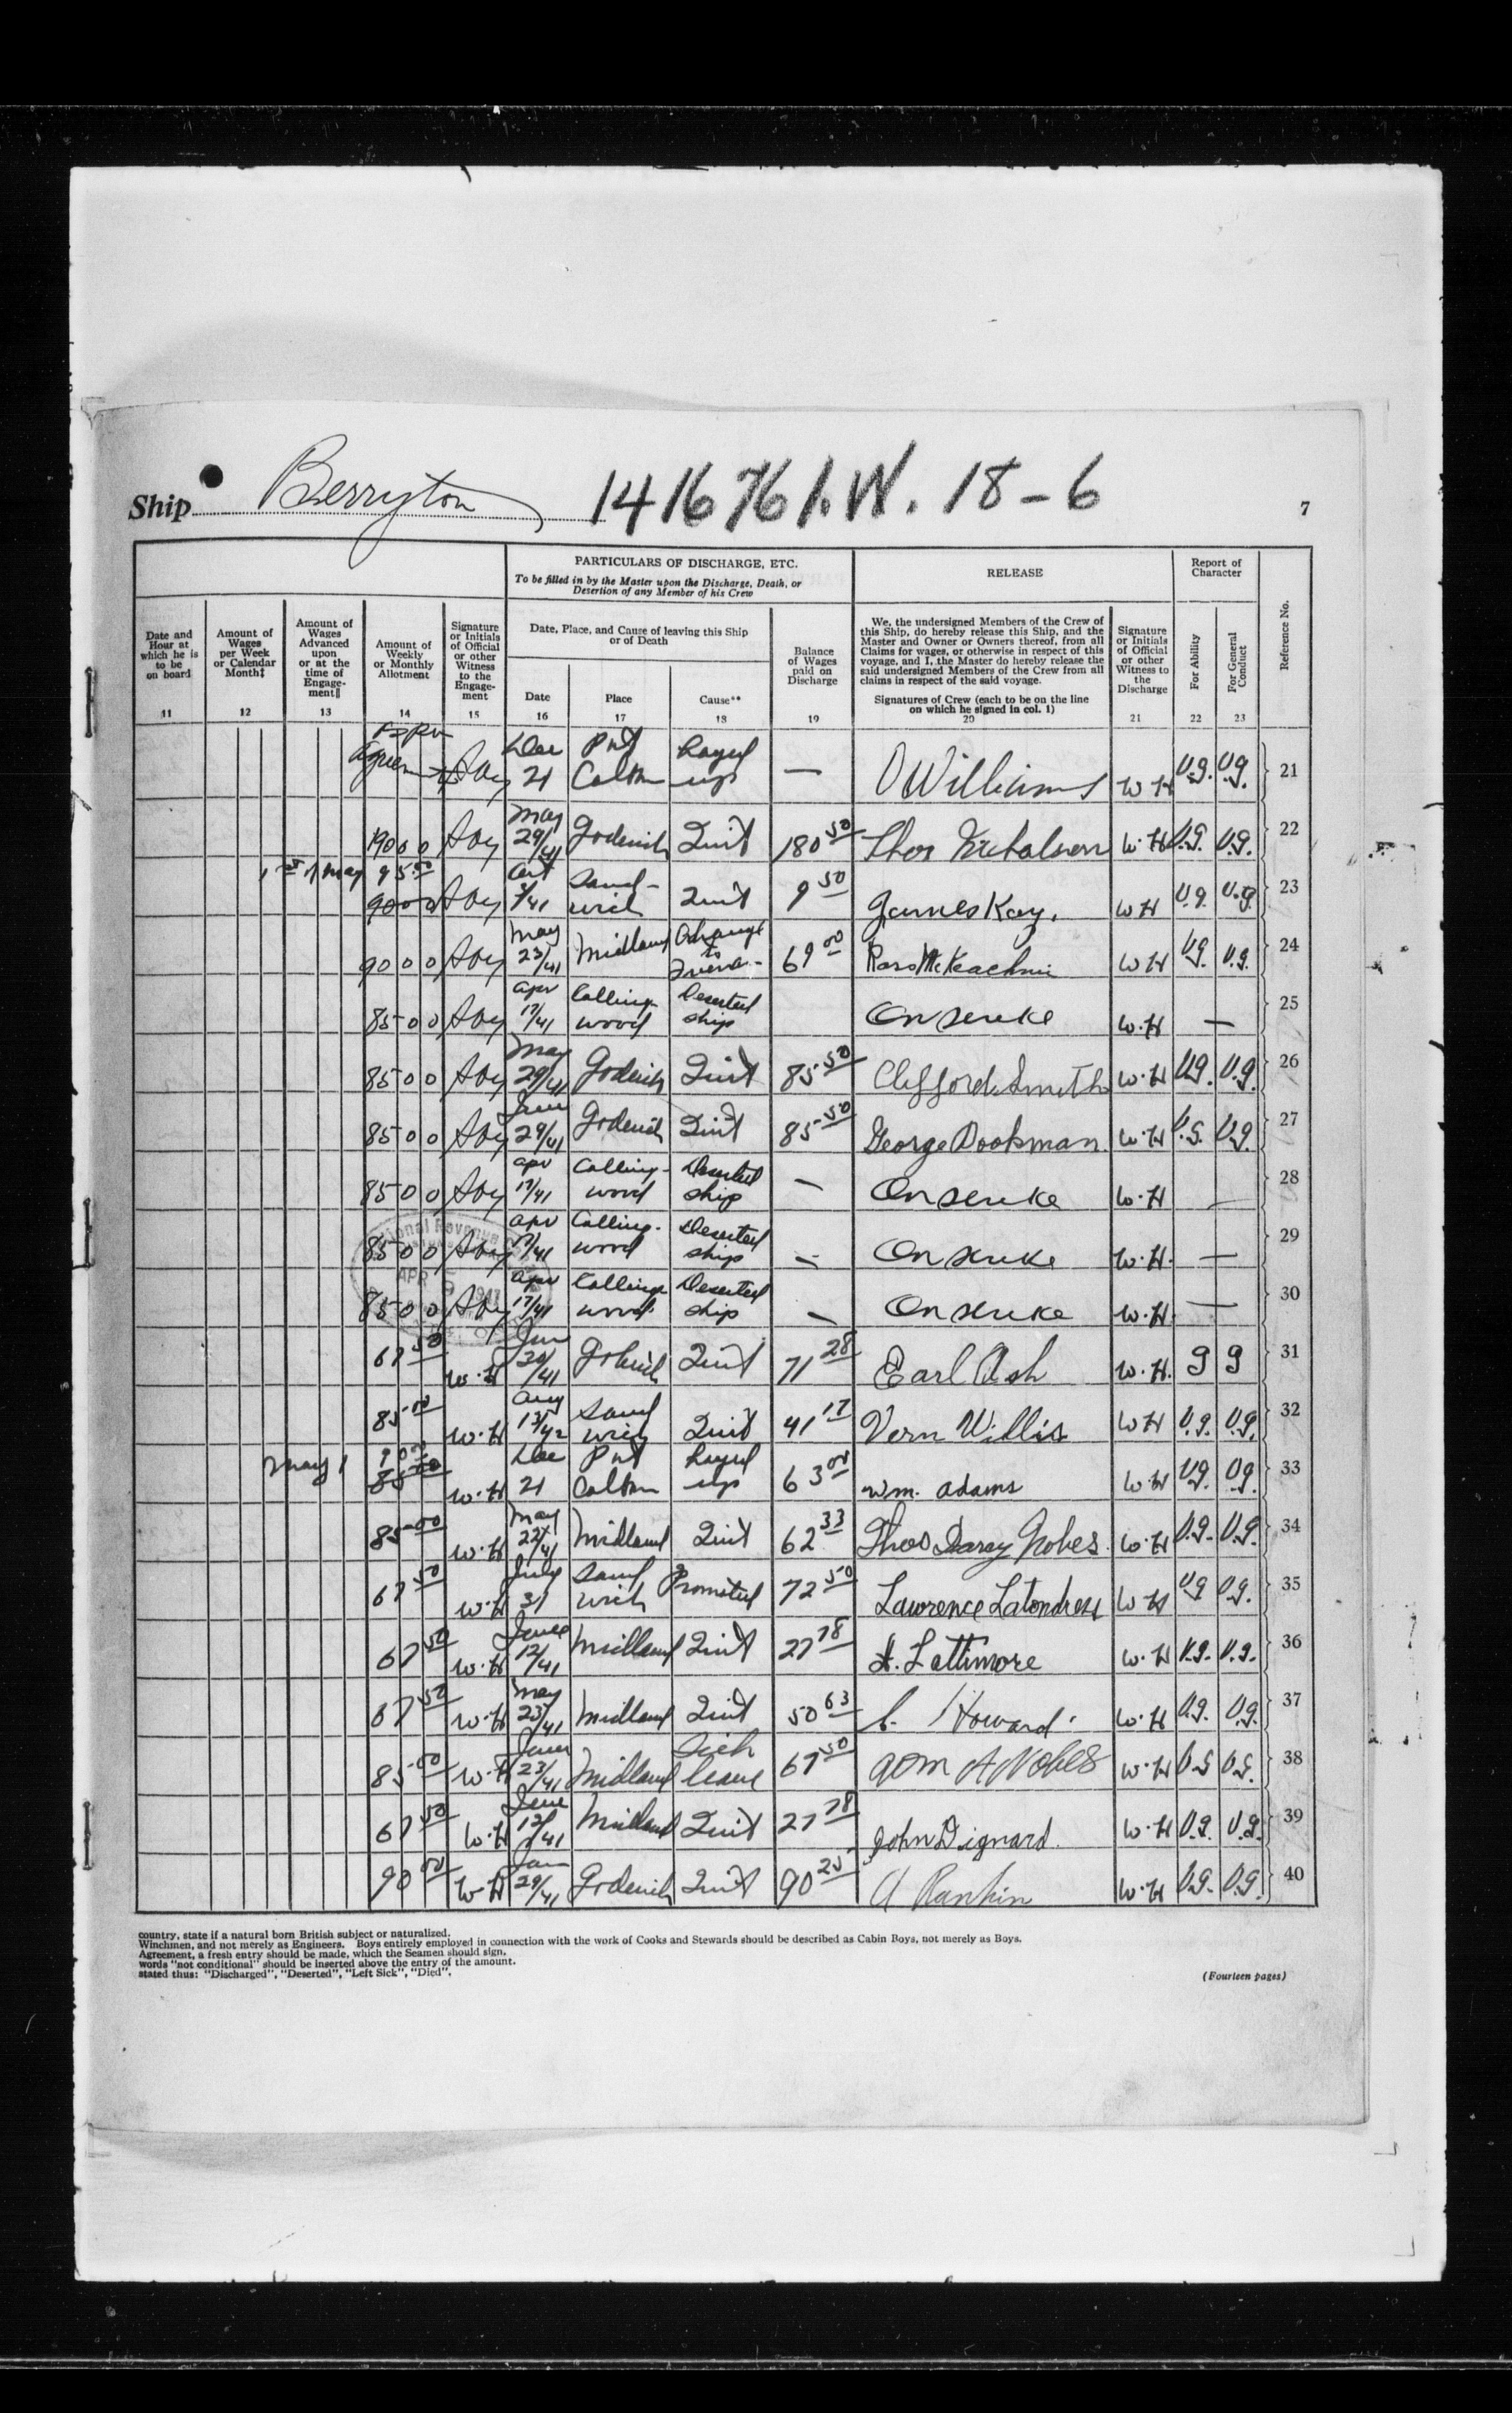 Ship Berryton 141676 I.W. 18-6
7
PARTICULARS OF DISCHARGE, ETC.
To be filled in by the Master upon the Discharge, Death, or
Desertion of any Member of his Crew
RELEASE
Report of
Character
Date and
Hour at
which he is
to be
on board
11
Amount of
Wages
per Week
or Calendar
Month‡
12
Amount of
Wages
Advanced
upon
or at the
time of
Engage-
ment‖
13
Amount of
Weekly
or Monthly
Allotment
14
Signature
or Initials
of Official
or other
Witness
to the
Engage-
ment
15
Date, Place, and Cause of leaving this Ship
or of Death
Date
16
Place
17
Cause**
18
Balance
of Wages
paid on
Discharge
19
We, the undersigned Members of the Crew of
this Ship, do hereby release this Ship, and the
Master and Owner or Owners thereof, from all
Claims for wages, or otherwise in respect of this
voyage, and I, the Master do hereby release the
said undersigned Members of the Crew from all
claims in respect of the said voyage.
Signatures of Crew (each to be on the line
on which he signed in col. 1)
20
Signature
or Initials
of Official
or other
Witness to
the
Discharge
21
For Ability
22
For General
Conduct
23
Reference No.
Dec 21 Port Colborne Layed up — O Williams W H V.g. V.g. 21
190 00 May 29/41 Goderich Quit 180 50 Thos Nicholson W.H V.g. V.g. 22
1st of May 95.00 90 00 Oct 3/41 Sandwich Quit 9 50 James Kay. W H V.g. V.g. 23
90 00 May 23/41 Midland 69 00 Ross McKeachnie W H V.g. V.g. 24
85 00 Apr 17/41 Collingwood Deserted ship On strike W.H — 25
85 00 May 29/41 Goderich Quit 85 50 Clifford Smith W.H V.g. V.g. 26
85 00 29/41 Goderich Quit 85 50 George Dookman. W.H V.g. V.g. 27
85 00 Apr 17/41 Collingwood Deserted ship — On strike W.H — 28
85 00 Apr 17/41 Collingwood Deserted ship — On strike W.H. — 29
85 00 Apr 17/41 Collingwood Deserted ship — On strike W.H. — 30
67 50 W.H Goderich Quit 71 28 Earl Ash W.H. g g 31
85 00 W.H Aug Sandwich Quit 41 17 Vern Willis W H V.g. V.g. 32
May 1 90 00 85 00 W.H Dec 21 Port Colborne Layed up 63 00 Wm. Adams W.H V.g. V.g. 33
85 00 W.H May Midland Quit 62 33 Thos Darcy Nobes. W.H V.g. V.g. 34
67 50 W.H July 31 Sandwich Promoted 72 50 Lawrence Latondress W H V.g V.g. 35
67 50 W.H June 12/41 Midland Quit 27 78 A. Lattimore W.H V.g. V.g. 36
67 50 W.H May 23/41 Midland Quit 50 63 C. Howard. W.H V.g. V.g. 37
85 00 W.H 23/41 Midland Sick leave 67 50 Nobes W.H V.g V.g. 38
67 50 W.H June 12/41 Midland Quit 27 78 John Dignard. W.H V.g. V.g. 39
90 00 W.H 29/41 Goderich Quit 90 25 A Rankin W.H V.g. V.g. 40
country, state if a natural born British subject or naturalized.
Winchmen, and not merely as Engineers. Boys entirely employed in connection with the work of Cooks and Stewards should be described as Cabin Boys, not merely as Boys.
Agreement, a fresh entry should be made, which the Seamen should sign.
words "not conditional" should be inserted above the entry of the amount.
stated thus: "Discharged", "Deserted", "Left Sick", "Died".
(Fourteen pages)